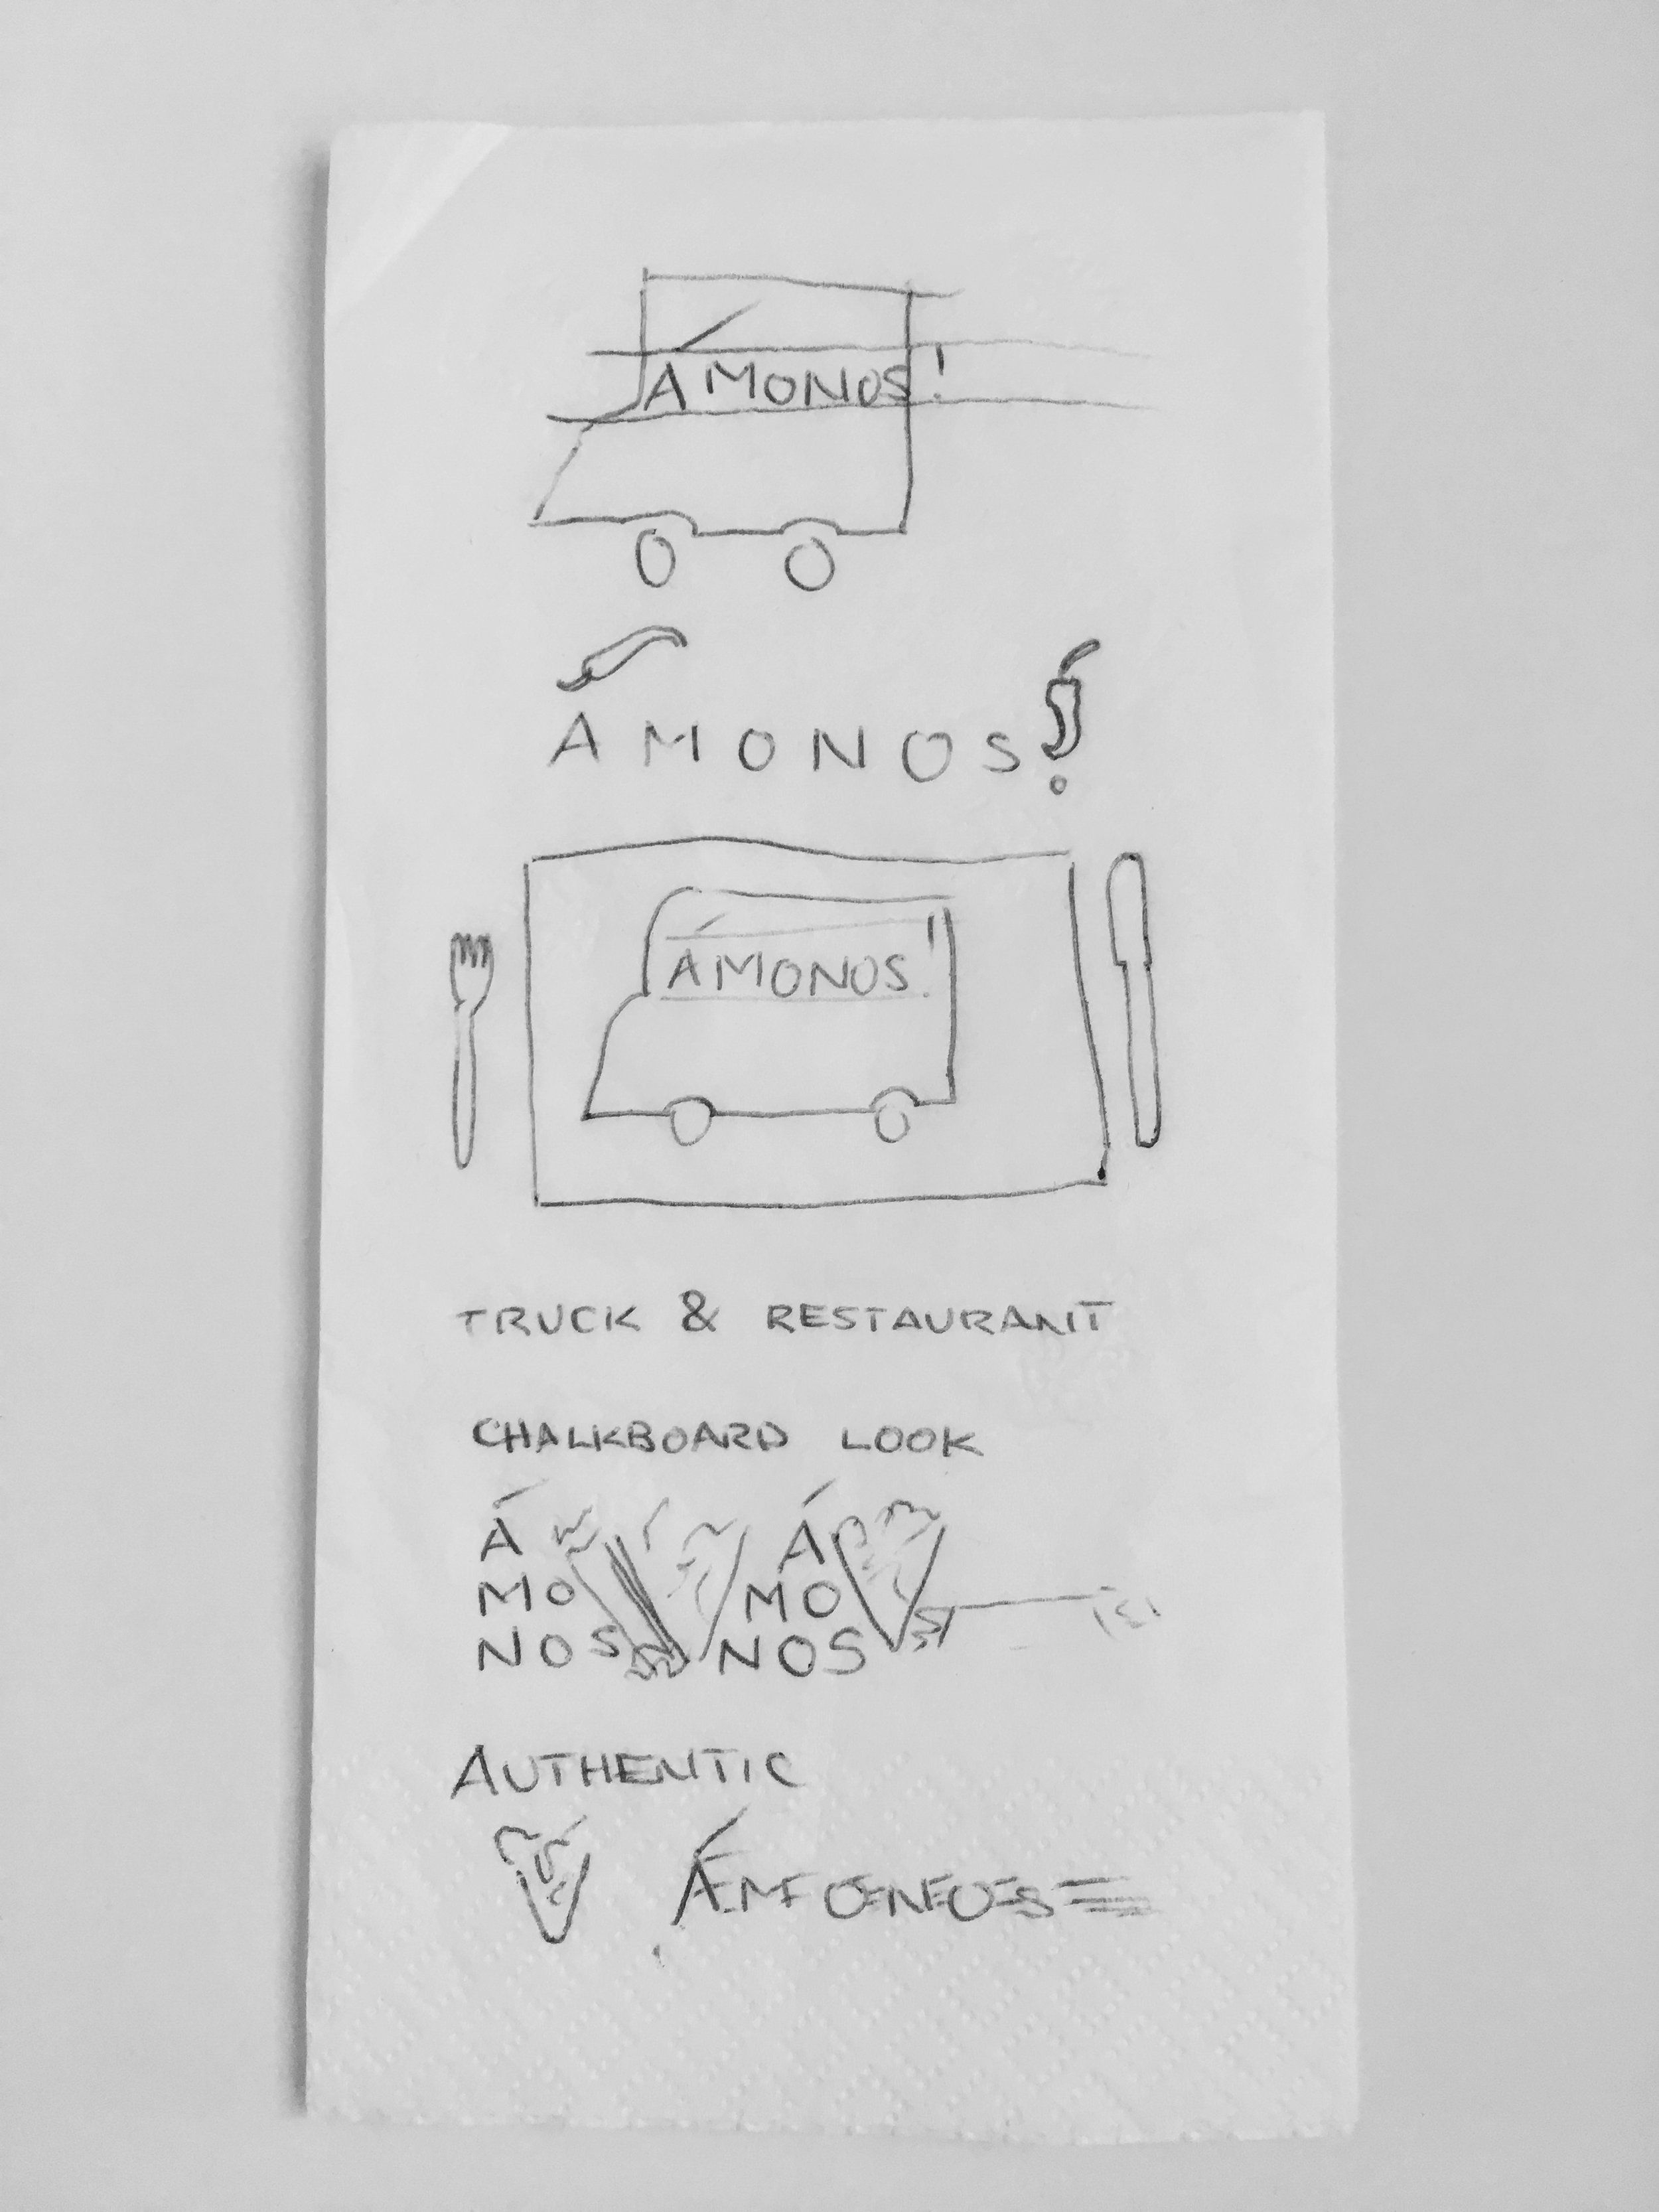 ÁMONOS!
ÁMONOS!
ÁMONOS!
TRUCK & RESTAURANT
CHALKBOARD LOOK
Á Á
MO MO
NOS NOS
AUTHENTIC
ÁMONOS